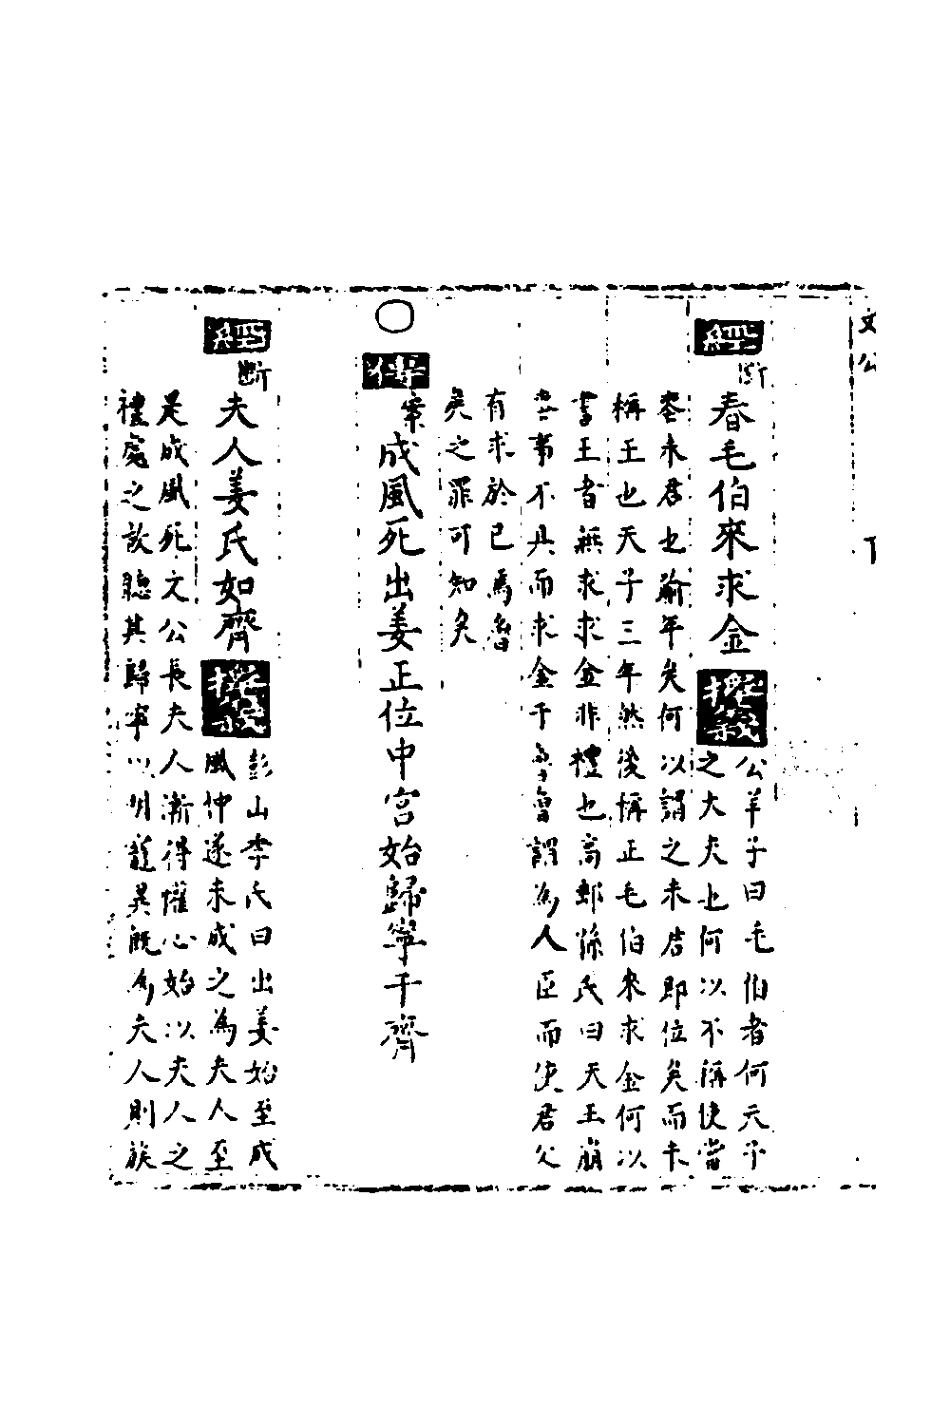 文公 下
經斷
春毛伯來求金
公羊子曰毛伯者何天子
之大夫也何以不稱使當
喪未君也踰年矣何以謂之未君即位矣而未
稱王也天子三年然後稱正毛伯來求金何以
書王者無求求金非禮也高郵孫氏曰天王崩
喪事不具而求金于魯魯諼為人臣而使君父
有求於已焉魯
矣之罪可知矣
傳案
成風死出姜正位中宮始歸寧于齊
經斷
夫人姜氏如齊
彭山李氏曰出姜始至成
風仲遂未成之為夫人至
是成風死文公長夫人漸得懽心始以夫人之
禮處之故聽其歸寧以明寵異既為夫人則族